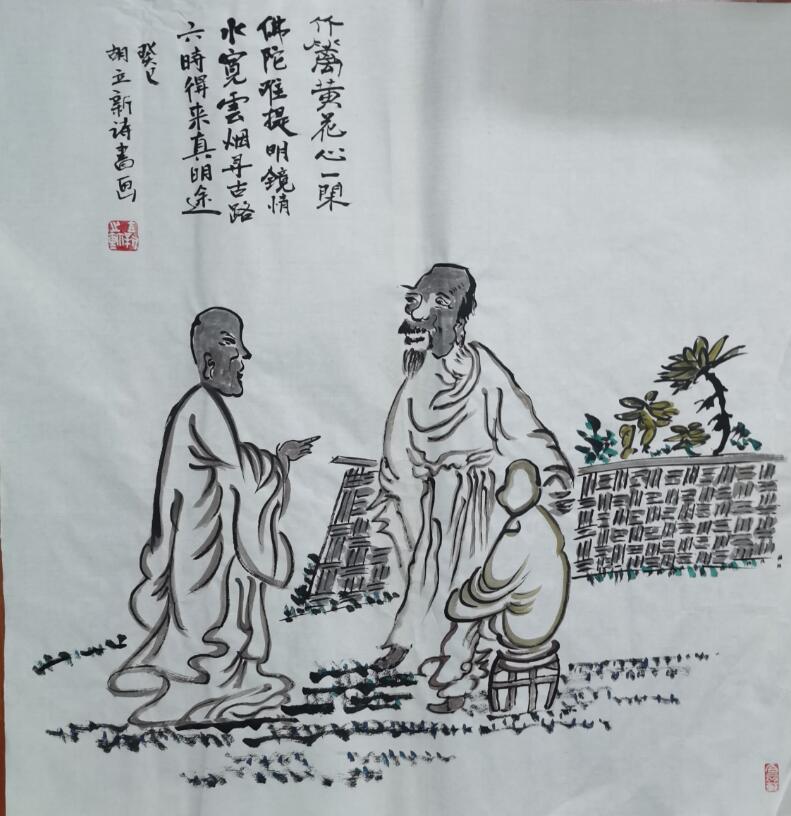 竹 黄花心一閑
佛陀唯提明鏡情
水寬雲烟寻古路
六時得来真明途
癸巳
胡立新诗書画